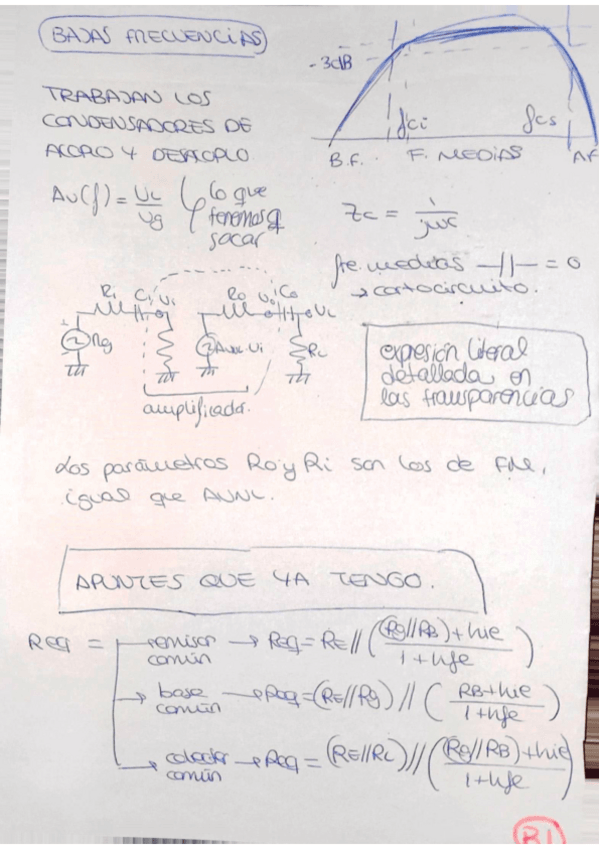 BAJAS FRECUENCIAS
-3dB
fci
fcs
B.F.
F. MEDIAS
AF
TRABAJAN LOS
CONDENSADORES DE
ACOPLO Y DESACOPLO
Av(f) = UL/Ug
lo que
tenemos q
sacar
Zc = 1/jwc
fre. medias ⊣⊢ = 0
→ cortocircuito.
Ri Ci Ui Ro Uo Co UL
Ug AVNL·Ui RL
amplificador.
expesión literal
detallada en
las transparencias
Los parámetros Ro y Ri son los de F.M,
igual que AVNL.
APUNTES QUE YA TENGO.
Req =
emisor común → Req = RE // ((Rg//RB)+hie / 1+hfe)
base común → Req = (RE//Rg) // (RB+hie / 1+hfe)
colector común → Req = (RE//RL) // ((Rg//RB)+hie / 1+hfe)
B1